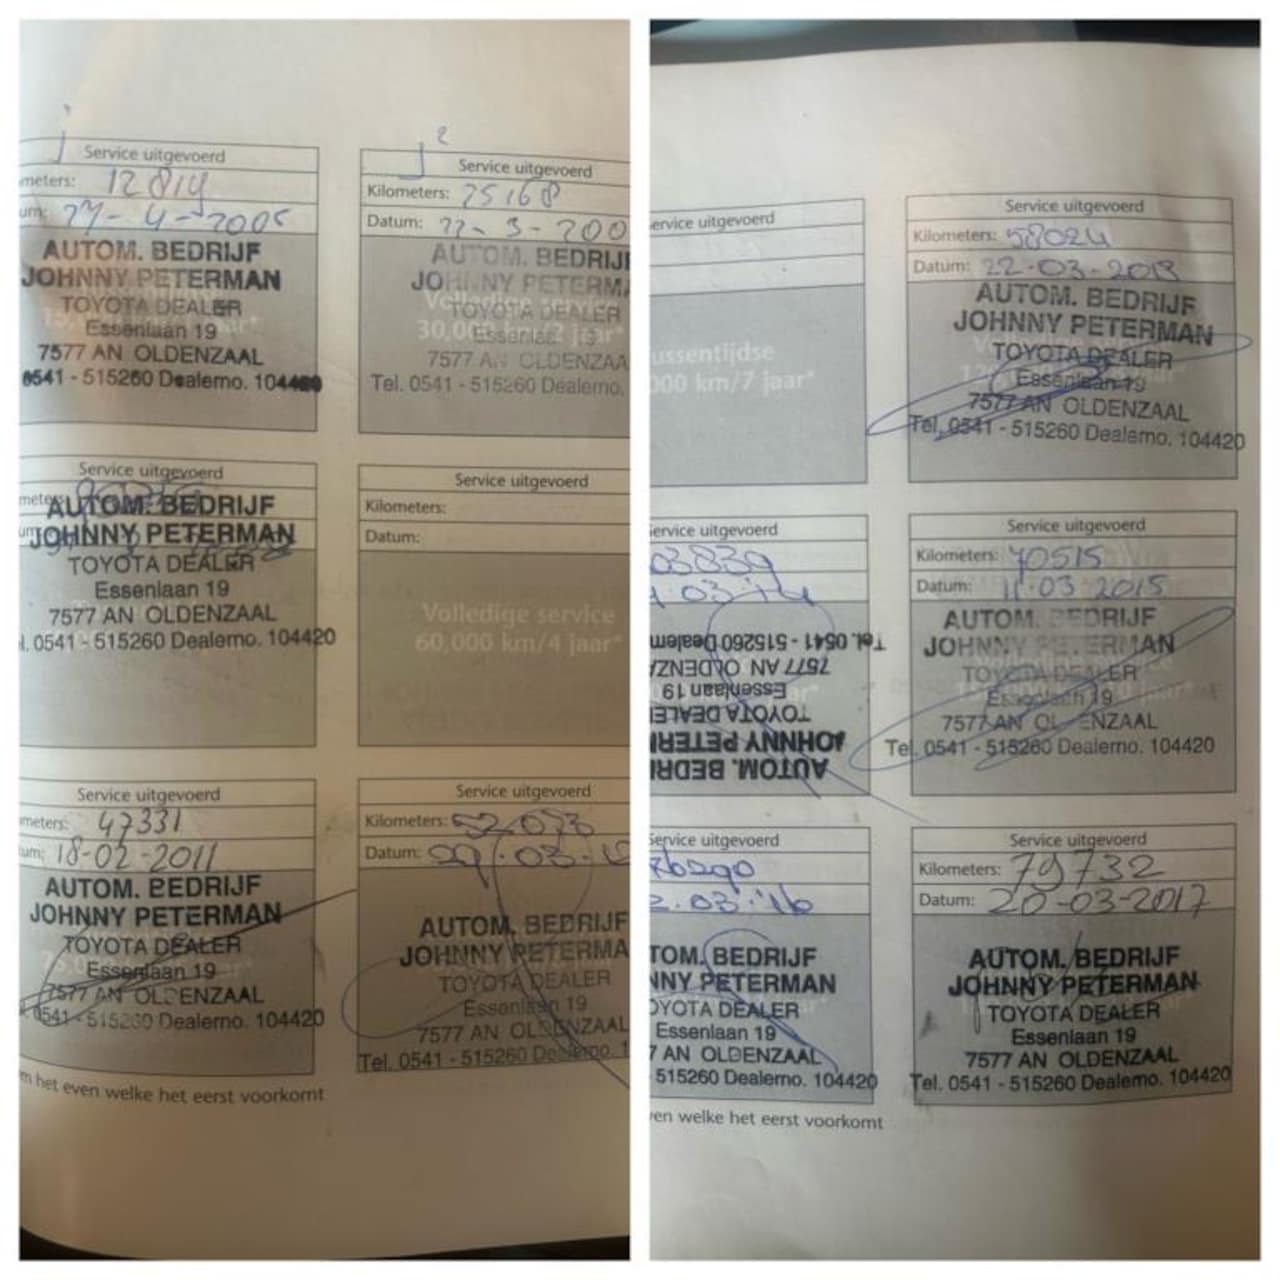 Service uitgevoerd
meters: 12819
um: 27-4-2005
AUTOM. BEDRIJF
JOHNNY PETERMAN
TOYOTA DEALER
Essenlaan 19
7577 AN OLDENZAAL
0541 - 515260 Dealerno. 104420
2
Service uitgevoerd
Kilometers: 25168
Datum: 22-3-200
AUTOM. BEDRIJ
JOHNNY PETERMA
Volledige service
TOYOTA DEALER
30,000 km/2 jaar*
Essenlaan 19
7577 AN OLDENZAA
Tel. 0541 - 515260 Dealerno.
Service uitgevoerd
meters:
um:
AUTOM. BEDRIJF
JOHNNY PETERMAN
TOYOTA DEALER
Essenlaan 19
7577 AN OLDENZAAL
l. 0541 - 515260 Dealerno. 104420
Service uitgevoerd
Kilometers:
Datum:
Volledige service
60,000 km/4 jaar*
Service uitgevoerd
meters: 47331
um: 18-02-2011
AUTOM. BEDRIJF
JOHNNY PETERMAN
TOYOTA DEALER
Essenlaan 19
7577 AN OLDENZAAL
0541 - 515260 Dealerno. 104420
Service uitgevoerd
Kilometers: 52.053
Datum: 29.03.12
AUTOM. BEDRIJF
JOHNNY PETERMA
TOYOTA DEALER
Essenlaan 19
7577 AN OLDENZAAL
Tel. 0541 - 515260 Dealerno. 1
n het even welke het eerst voorkomt
ervice uitgevoerd
ussentijdse
000 km/7 jaar*
Service uitgevoerd
Kilometers: 58024
Datum: 22-03-2013
AUTOM. BEDRIJF
JOHNNY PETERMAN
TOYOTA DEALER
Essenlaan 19
7577 AN OLDENZAAL
Tel. 0541 - 515260 Dealerno. 104420
Service uitgevoerd
03839
03-14
Tel. 0541 - 515260 Dealern
7577 AN OLDENZA
Essenlaan 19
TOYOTA DEALE
JOHNNY PETERM
AUTOM. BEDRI
Service uitgevoerd
Kilometers: 70515
Datum: 11-03 2015
AUTOM. BEDRIJF
JOHNNY PETERMAN
TOYOTA DEALER
Essenlaan 19
7577 AN OLDENZAAL
Tel. 0541 - 515260 Dealerno. 104420
Service uitgevoerd
76290
2.03.'16
TOM. BEDRIJF
NNY PETERMAN
OYOTA DEALER
Essenlaan 19
7 AN OLDENZAAL
515260 Dealerno. 104420
Service uitgevoerd
Kilometers: 79732
Datum: 20-03-2017
AUTOM. BEDRIJF
JOHNNY PETERMAN
TOYOTA DEALER
Essenlaan 19
7577 AN OLDENZAAL
Tel. 0541 - 515260 Dealerno. 104420
ven welke het eerst voorkomt